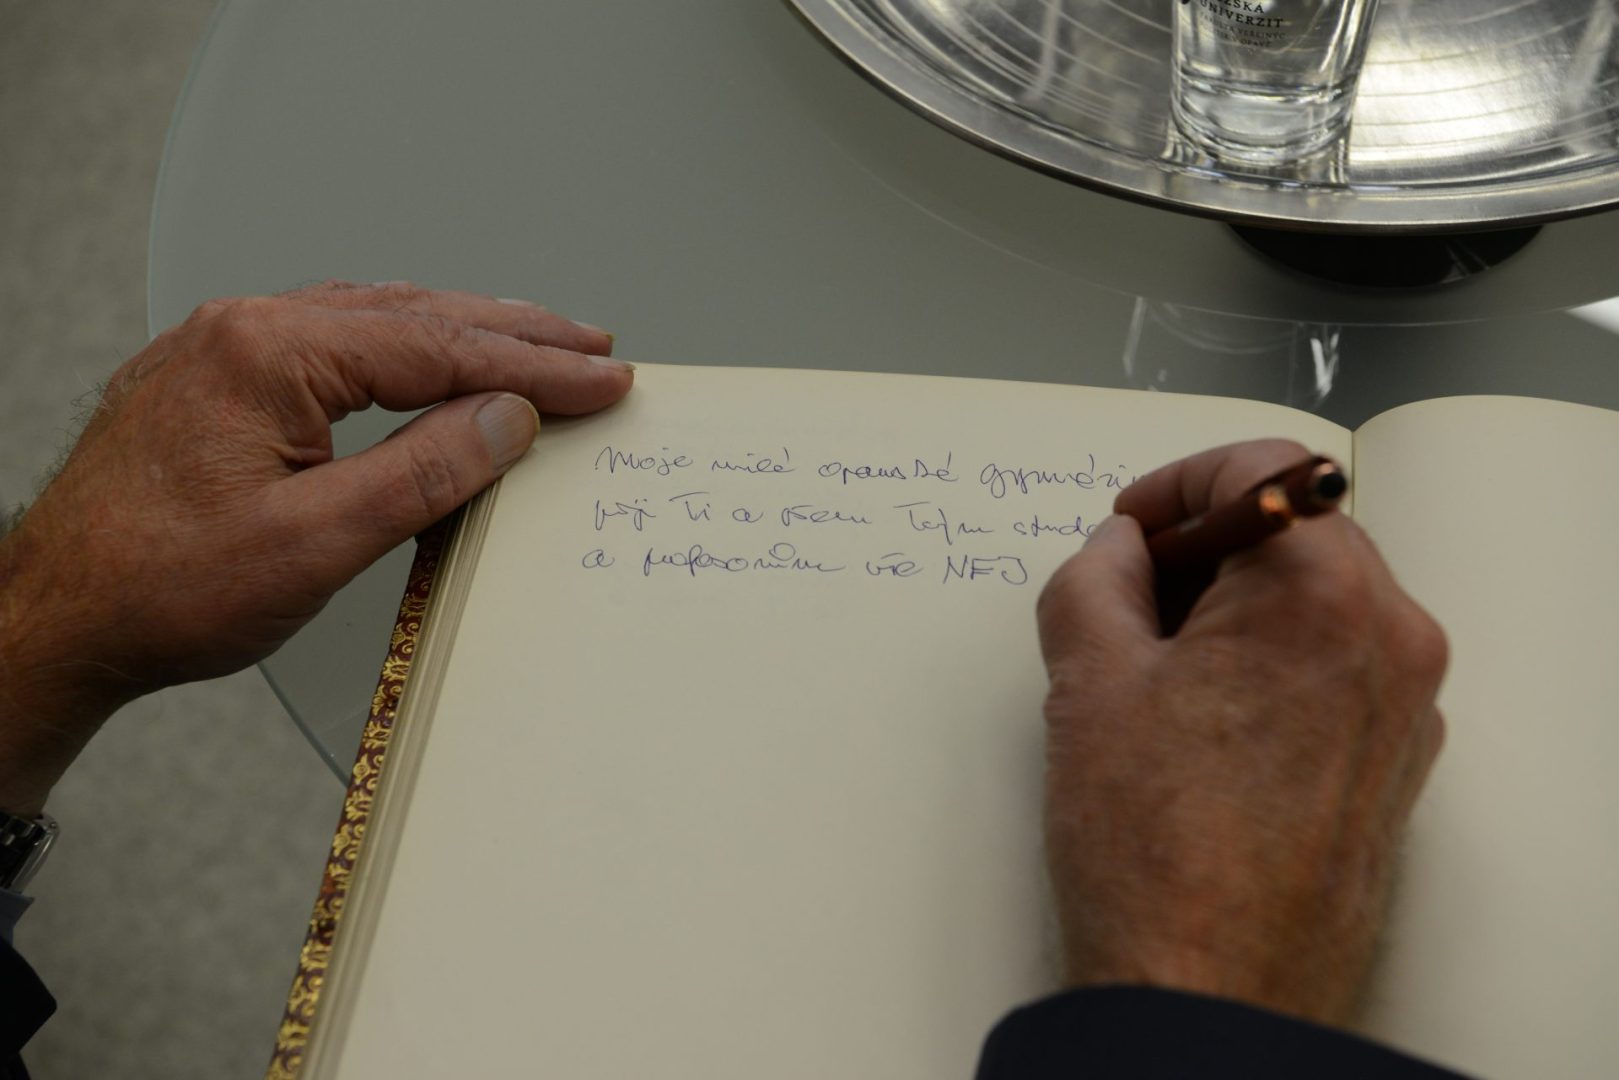 EZSKÁ
UNIVERZIT
FAKULTA VEŘEJNÝC
Moje milé opavské gymnázi
přeji Ti a všem Tvým stude
a profesorům vše NEJ